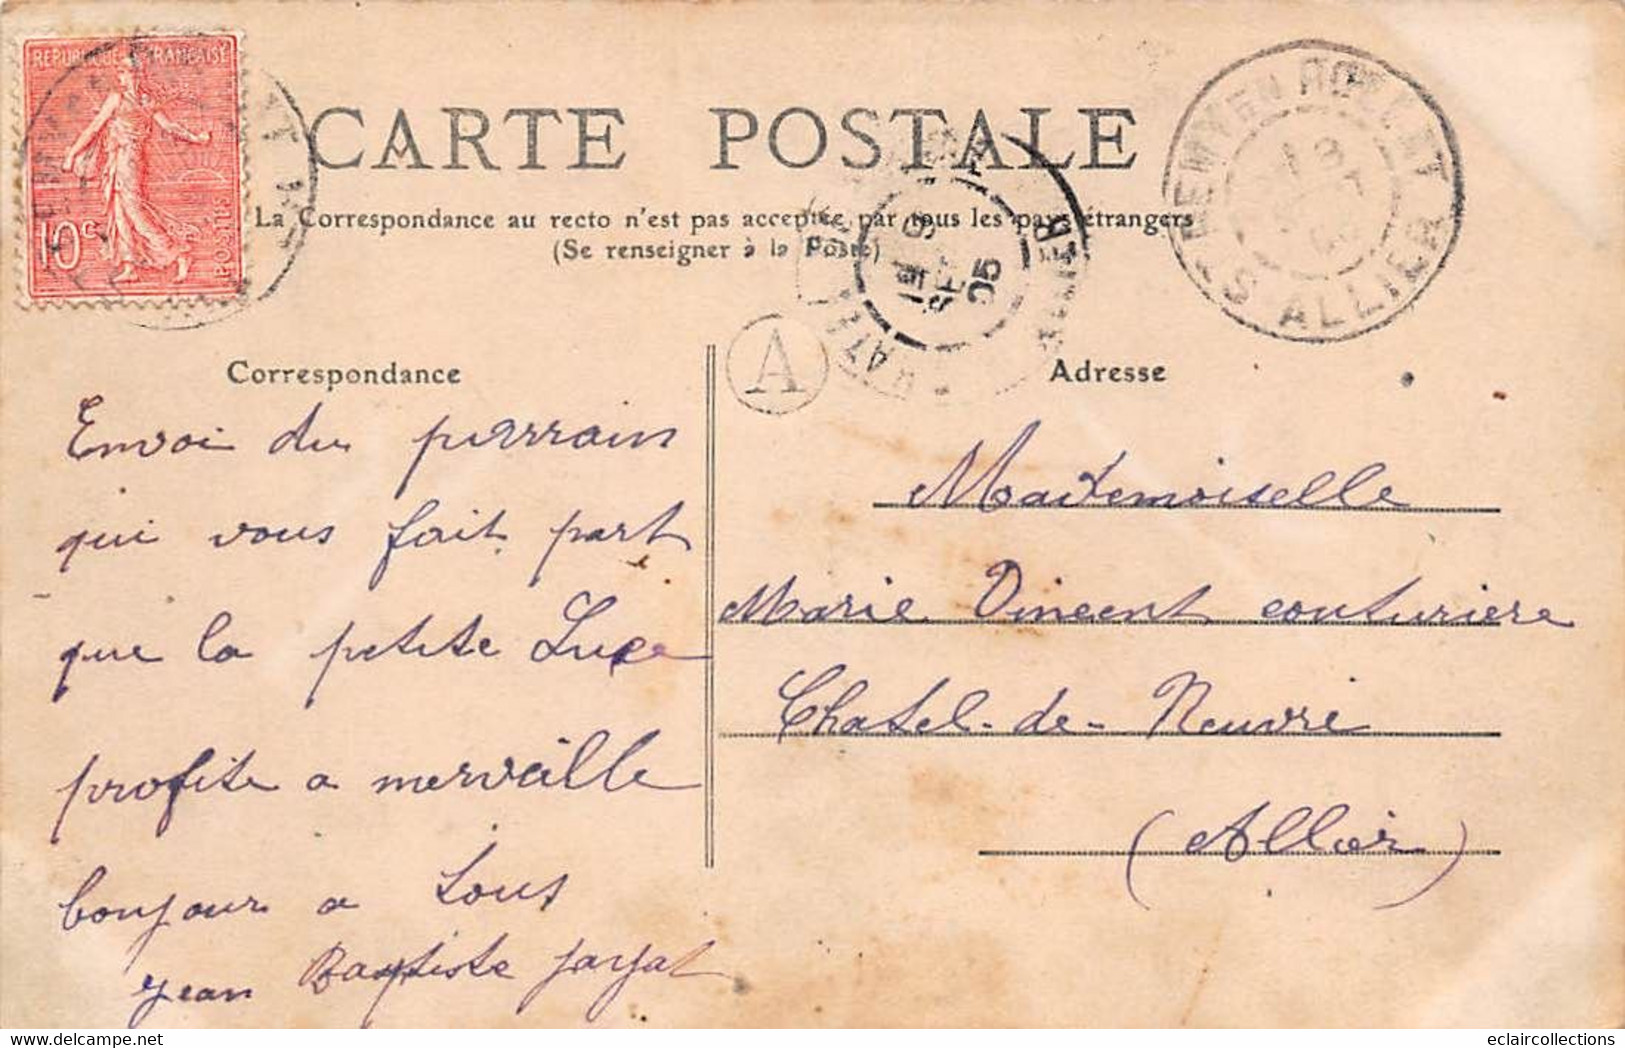 REPUBLIQUE FRANÇAISE
10c
POSTES
CARTE POSTALE
La Correspondance au recto n'est pas acceptée par tous les pays étrangers
(Se renseigner à la Poste)
ALLIER
05
ALLIER
A
Correspondance
Envoi du parrain
qui vous fait part
que la petite Luce
profite a merveille
bonjour a tous
Jean Baptiste Jayat
Adresse
Mademoiselle
Marie Vincent couturiere
Chatel-de-Neuvre
(Allier)
eclaircollections